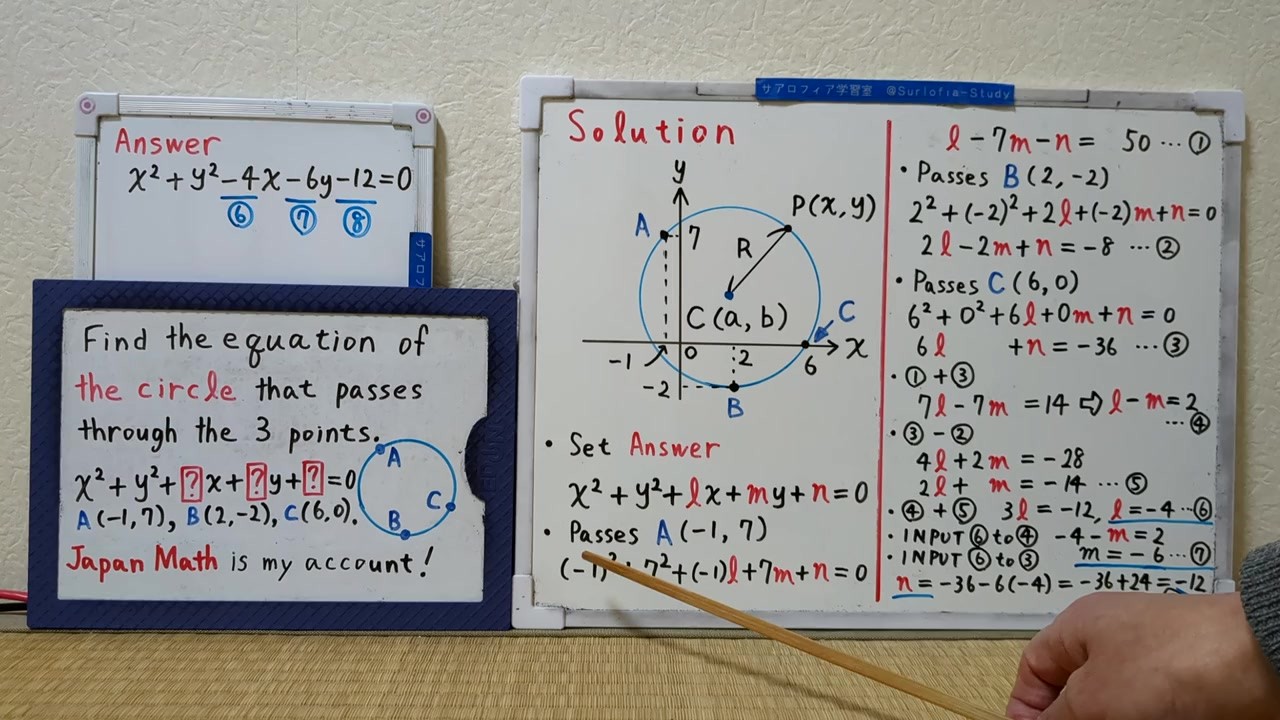 Answer
x²+y²-4x-6y-12=0
⑥ ⑦ ⑧
サアロフ
Find the equation of
the circle that passes
through the 3 points.
x²+y²+?x+?y+?=0
A(-1,7), B(2,-2), C(6,0).
A
C
B
Japan Math is my account!
サアロフィア学習室 @Surlofia-Study
Solution
y
P(x,y)
A
7
R
C(a,b)
C
-1
0
2
6
x
-2
B
• Set Answer
x²+y²+lx+my+n=0
• Passes A(-1,7)
(-1)² 7²+(-1)l+7m+n=0
l-7m-n= 50 … ①
• Passes B(2,-2)
2²+(-2)²+2l+(-2)m+n=0
2l-2m+n=-8 … ②
• Passes C(6,0)
6²+0²+6l+0m+n=0
6l +n=-36 … ③
• ①+③
7l-7m =14 ⇨ l-m=2
… ④
• ③-②
4l+2m =-28
2l+ m =-14 … ⑤
• ④+⑤ 3l=-12, l=-4 … ⑥
• INPUT ⑥ to ④ -4-m=2
• INPUT ⑥ to ③ m=-6 … ⑦
n=-36-6(-4)=-36+24=-12